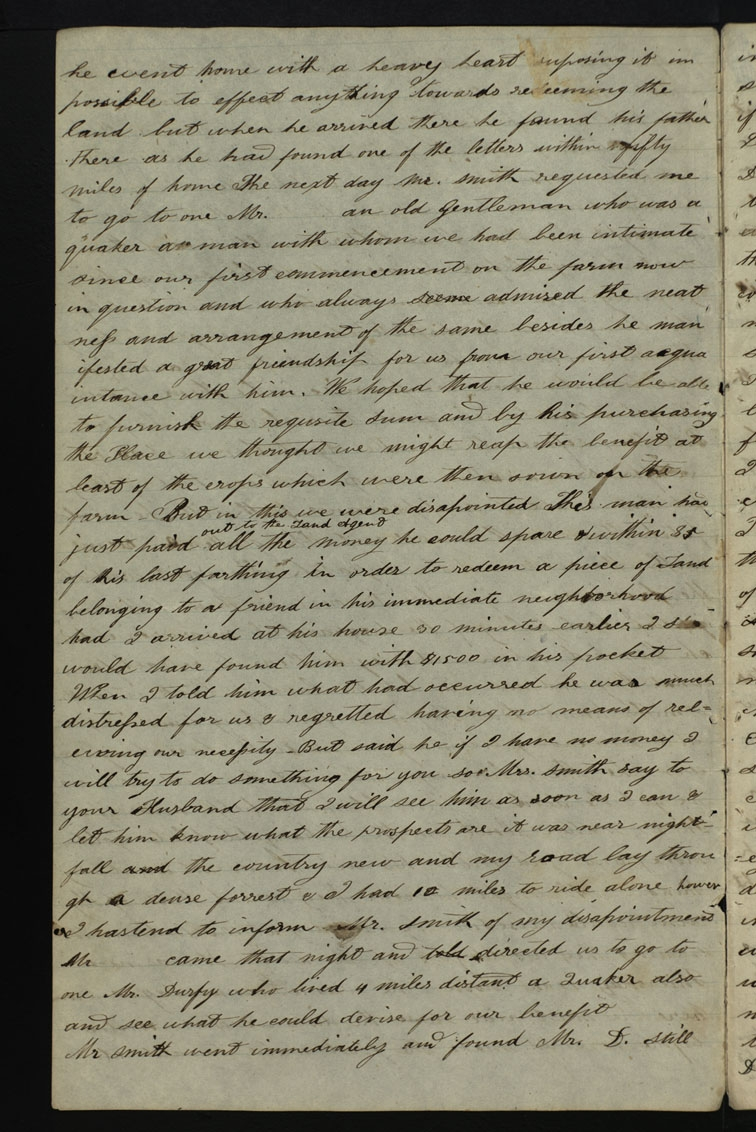 he went home with a heavy heart suposing it im
possible to effect anything towards redeeming the
land but when he arrived there he found his father
there as he had found one of the letters within fifty
miles of home The next day Mr. Smith requested me
to go to one Mr. an old Gentleman who was a
quaker a man with whom we had been intimate
since our first commencement on the farm now
in question and who always seeme admired the neat
ness and arrangement of the same besides he man
ifested a great friendship for us from our first acqua
intance with him. We hoped that he would be able
to furnish the requsite sum and by his purchasing
the Place we thought we might reap the benefit at
least of the crops which were then sown on the
farm - But in this we were disapointed The man had
out to the Land Agent
just paid all the money he could spare & within $5
of his last farthing in order to redeem a piece of Land
belonging to a friend in his immediate neighborhood
had I arrived at his house 30 minutes earlier I
would have found him with $1500 in his pocket
When I told him what had occurred he was much
distressed for us & regretted having no means of rel-
eiving our necessity - But said he if I have no money I
will try to do something for you so Mrs. Smith say to
your Husband that I will see him as soon as I can &
let him know what the prospects are it was near night-
fall and the country new and my road lay throu
gh a dense forrest & I had 10 miles to ride alone however
I hastend to inform Mr. Smith of my disapointment
Mr came that night and told directed us to go to
one Mr. Durfy who lived 4 miles distant a Quaker also
and see what he could devise for our benefit
Mr Smith went immediately and found Mr. D. still